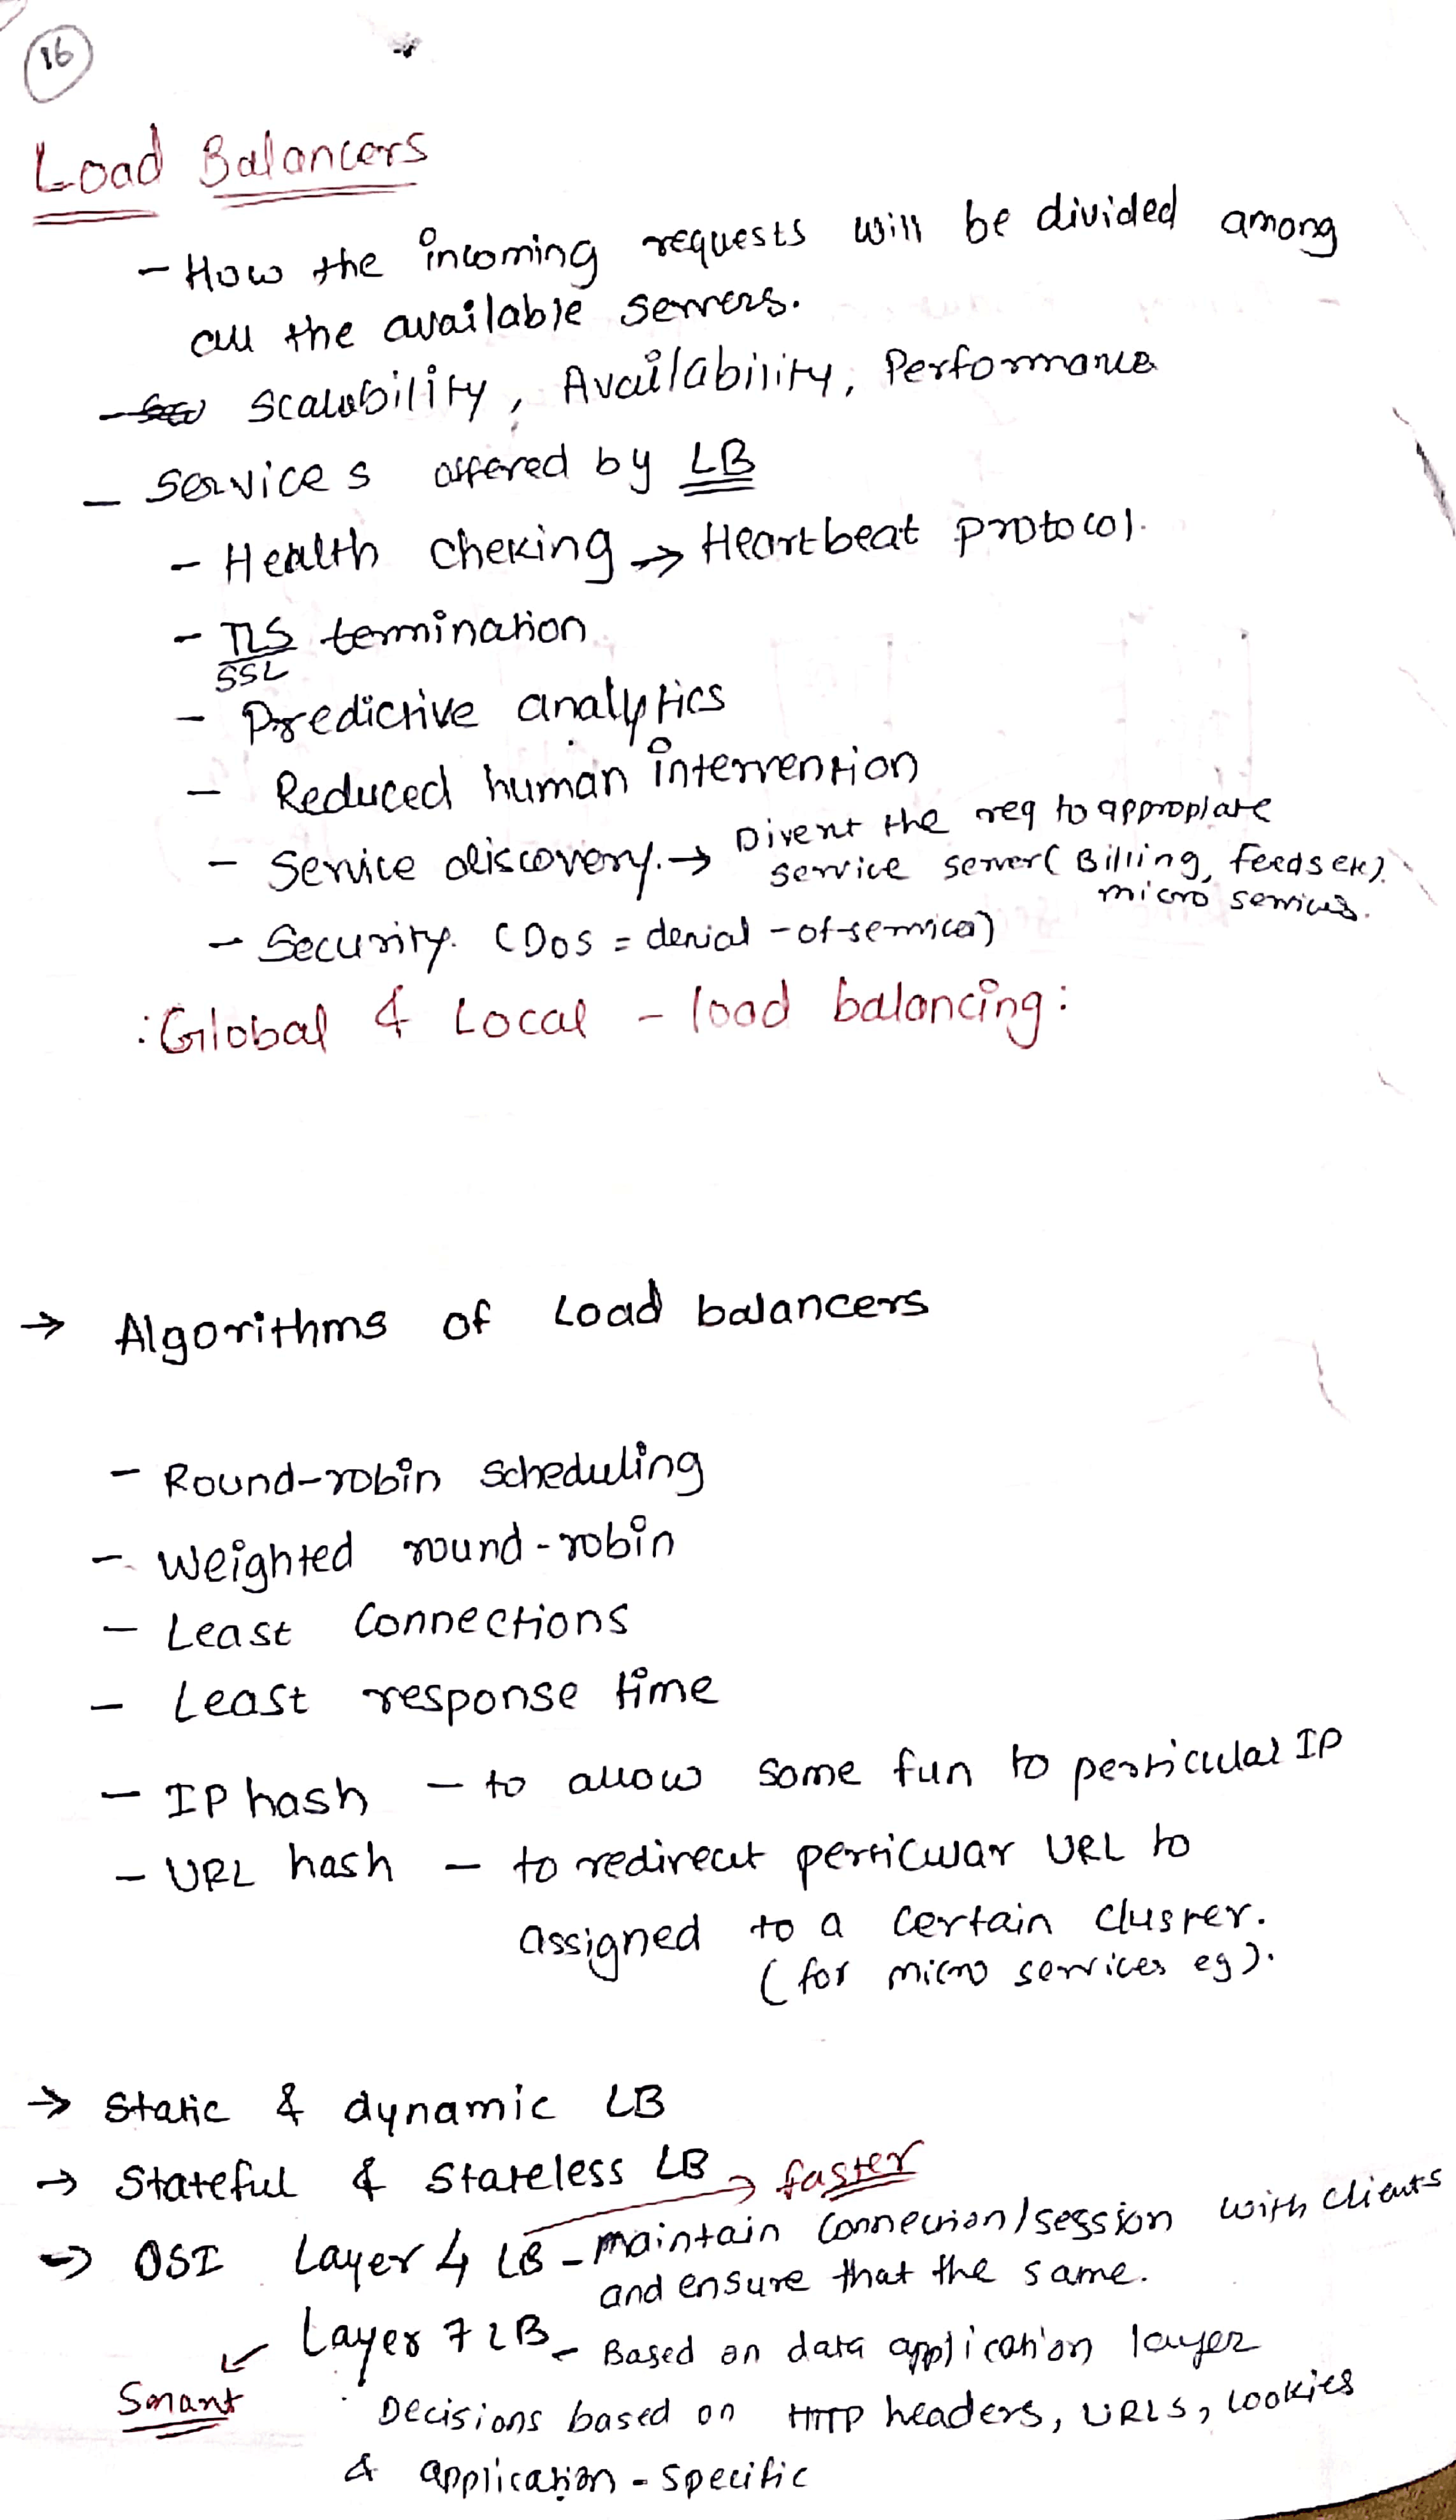 16
Load Balancers
- How the incoming requests will be divided among
all the available servers.
- Scalability, Availability, Performance
- Services offered by LB
- Health cheking → Heartbeat protocol.
- TLS termination
SSL
- Predictive analytics
- Reduced human intervention
- Service discovery. → Divert the req to appropiate
service server (Billing, feeds etc).
micro services.
- Security. (DoS = denial-of-service)
: Global & Local - load balancing :
→ Algorithms of Load balancers
- Round-robin scheduling
- Weighted round-robin
- Least Connections
- Least response time
- IP hash - to allow some fun to perticular IP
- URL hash - to redirect perticular URL to
assigned to a certain cluster.
(for micro services eg).
→ Static & dynamic LB
→ Stateful & Stateless LB
→ faster
→ OSI Layer 4 LB - maintain connection/session with clients
and ensure that the same.
Layer 7 LB - Based on data application layer
Smart
Decisions based on HTTP headers, URLS, cookies
& application - specific